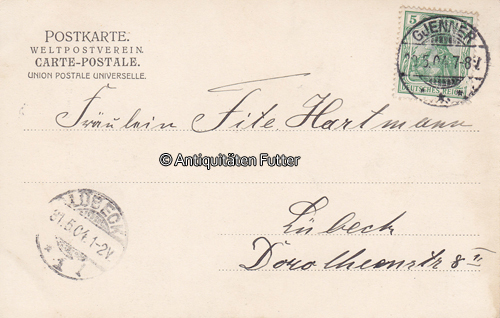 POSTKARTE.
WELTPOSTVEREIN.
CARTE-POSTALE.
UNION POSTALE UNIVERSELLE.
5
DEUTSCHES REICH
GJENNER
.5.04.7-8V.
Fräulein Fite Hartmann
© Antiquitäten Futter
LÜBECK
31.5.04.1-2V.
1
Lübeck
Dorotheenstr 8